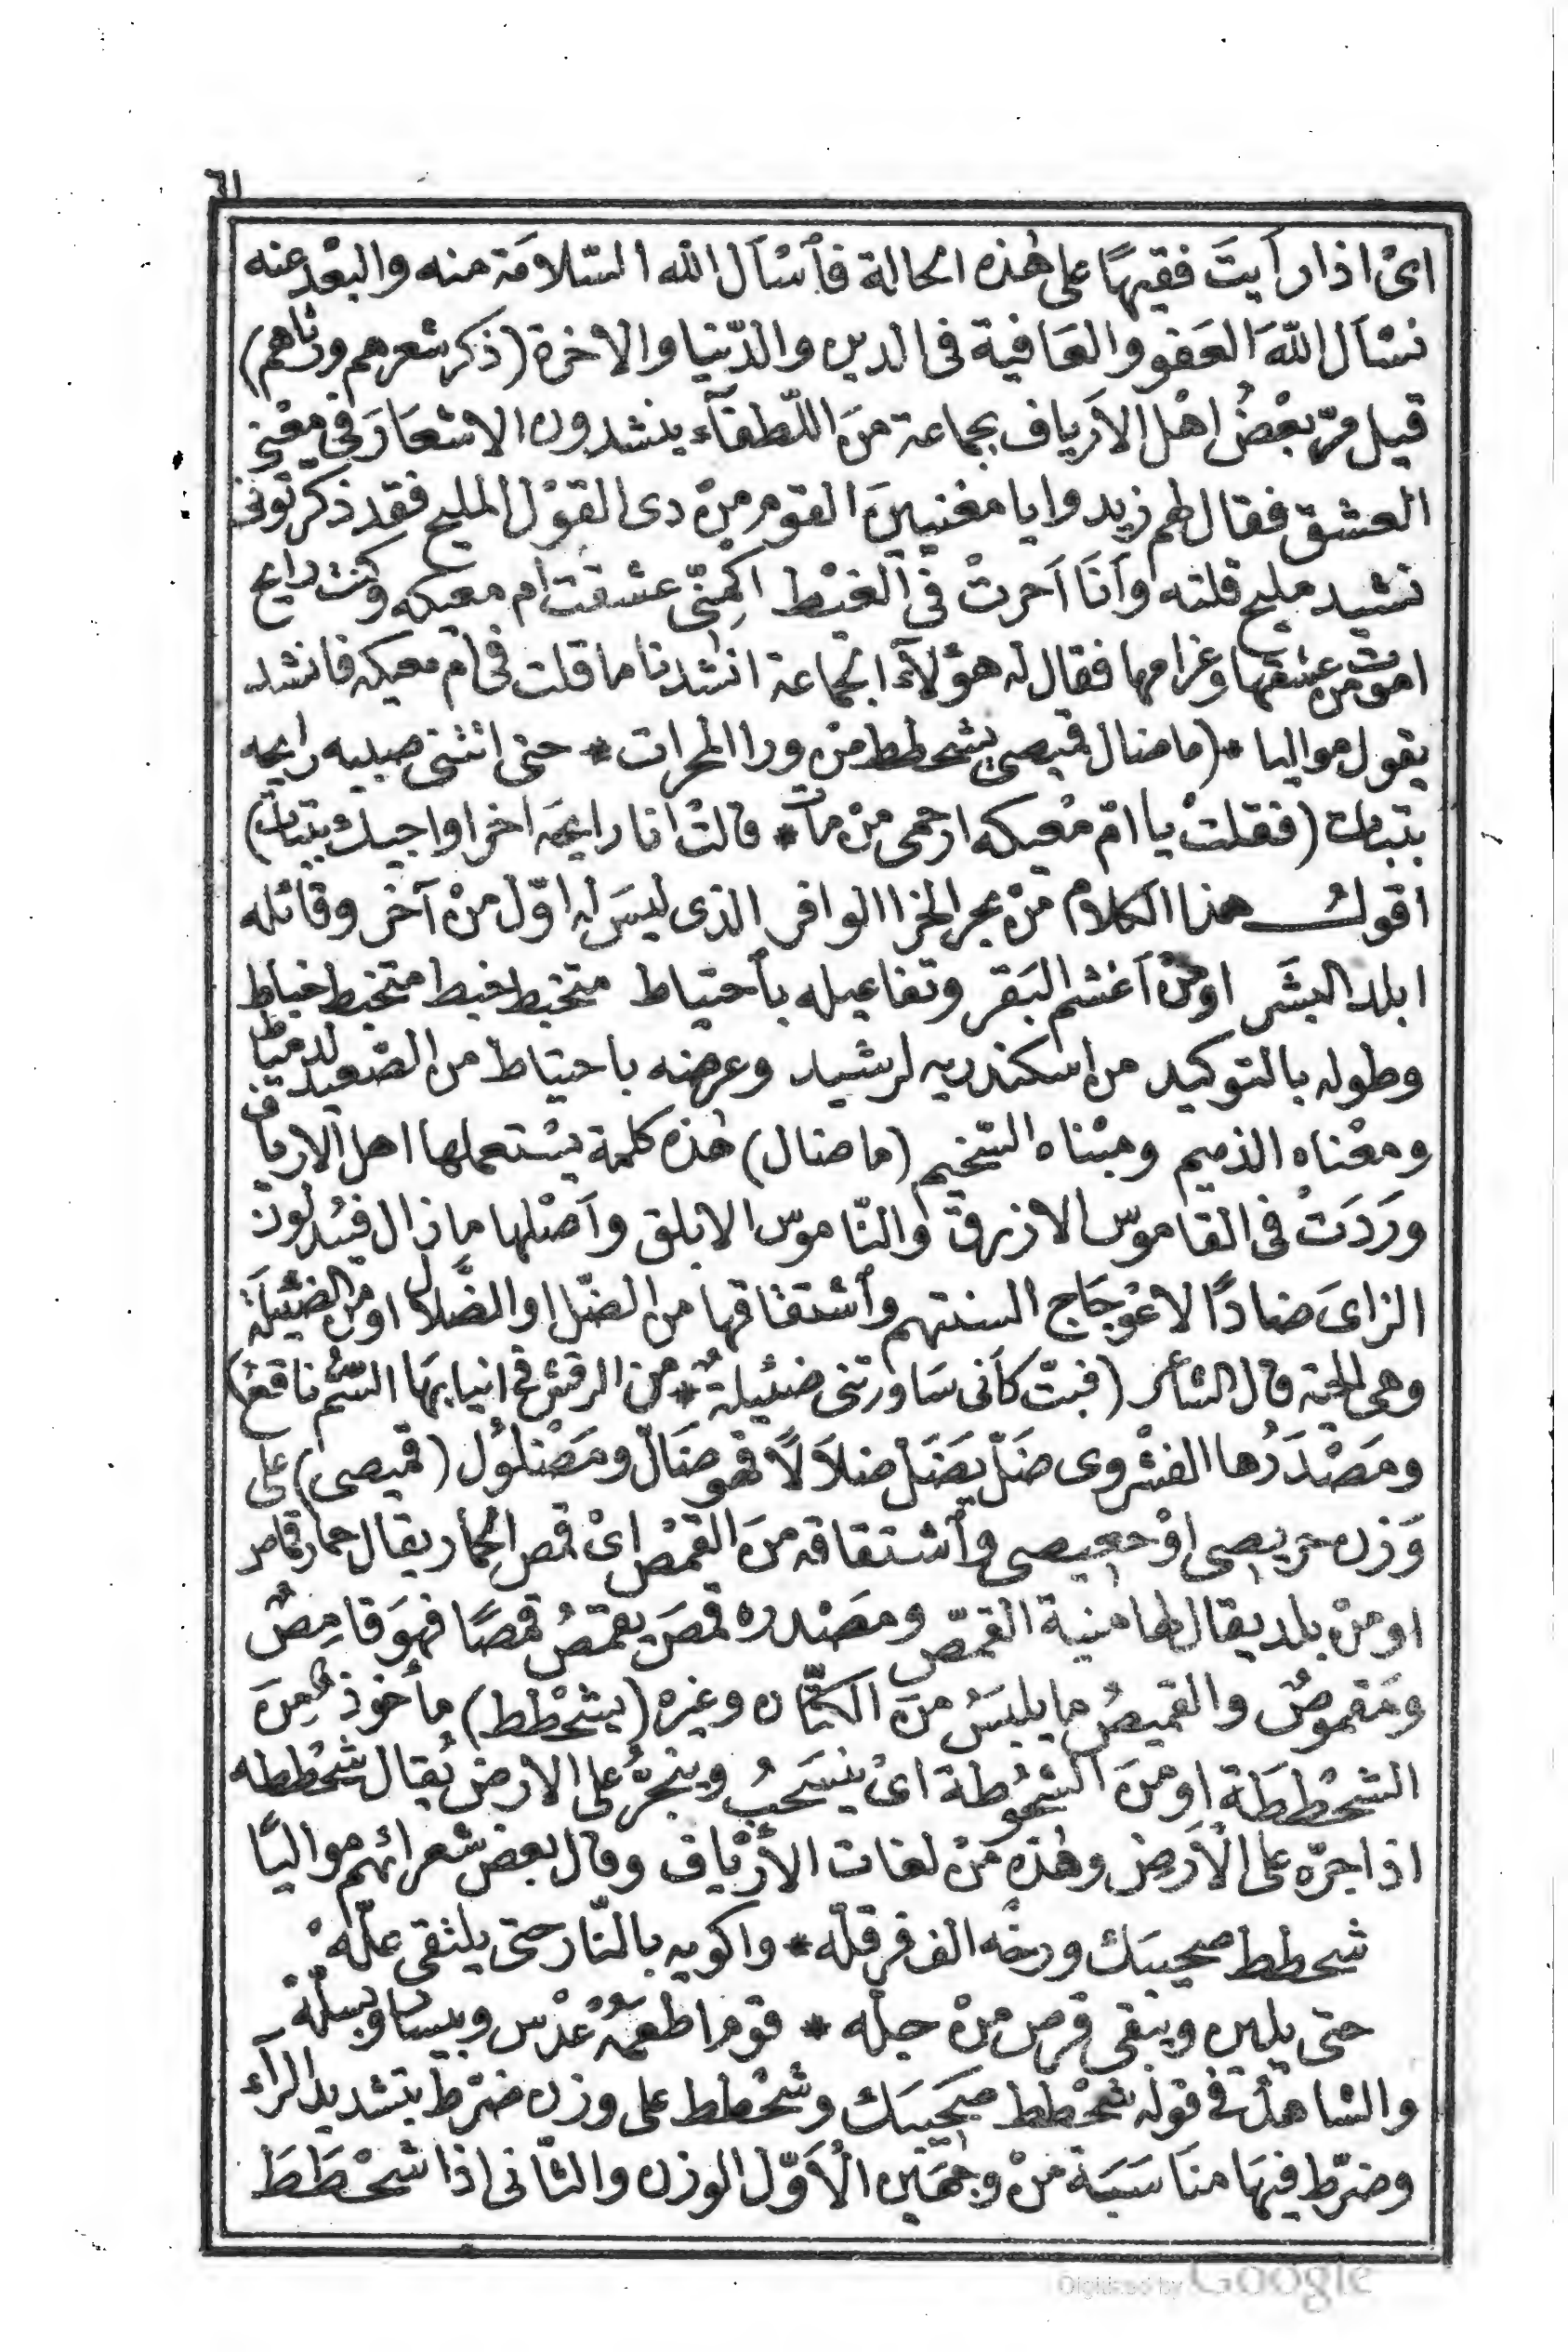 ٦١
اىْ اذا رأيتَ فقيهًا على هٰذه الحالة فأسْأل الله السّلامَة منه والبعْد عنه
نسْأل اللّهَ العَفو والعَافية فى الدين والدّنيا والاخرة (ذكر شعرهم ورثاهم)
قيل مرّ بعْضُ اهْل الاَرياف بجماعة منَ اللّطفآء ينشدون الاشعَارَ فى معْنى
العشق فقال لهم زيدوا يا مغنيينَ القوم منْ دى القوْل المليح فقد ذكرتونى
نشيد مليح قلته وأنَا أحرتْ فى الغيْط اكِمنّى عشقت ام معيكه وكنت رايح
اموت من عشقها وغرامها فقال له هؤلآء الجماعة انشدنا ما قلت فى ام معيكه فانشد
يقول مواليا * (ما ضال قميصى يشحطط منْ ورا المحرات * حتى انثنى صبيه رايحه
بتبات (فقلتْ يا امّ مْعيكه ارحمى منْ مات * قالتْ انا رايحَه اخرا واجيك بتبات)
اقول هذا الكلام منْ بحر الخرا الوافر الذى ليسَ له اوّل منْ آخر وقائله
ابلد البشَر اومنْ أغشم البَقر وتفاعيله بأحتياط متخبط خبط متخبط خباط
وطوله بالتوكيد من اسكندريه لرشيد وعرضه باحتياط من الصّعيد لدمياط
ومعْناه الذميم ومبْناه السّخيم (ما ضال) هٰذه كلمة يسْتعملها اهل الارياف
وَرَدَتْ فى القاموس الازرق والنّاموس الابلق وأصْلها ما زال فيبْدلونَ
الزاىَ ضادًا لاعْوجَاج السنتهم وأشتقاقها من الضّل او الضَّلال او من الضئيلَة
وهى الحيّة قال الشأعر (فبتّ كأنى سَاورتنى ضئيلةٌ * من الرقش فى انيابهَا السّمُّ ناقعُ)
ومَصْدَرُها الفشْروى ضَلّ يضَلّ ضلاَلًا فهو ضَالّ ومَضْلُول (قميصى) على
وَزن حريصى اوْ حعيصى وأشتقاقه منَ القمْص اىْ قمص الحمأر يقال حمار قامص
او منْ بلد يقال لها منية القمّص ومصَْدره قمصَ يقمصُ قمصًا فهوَ قامِصٌ
ومَقموصٌ والقميصُ ما يلبسُ منَ الكتّان وغيره (يشحْطط) مأخوذ مِنَ
الشحْططَة او منَ الشّحُوطة اىْ ينسَحبُ وينجرُّ على الارض يُقال شحْططه
اذا جرّه على الاَرض وهٰذه منْ لغات الأرْياف وقال بعض شعرائهم مواليًا
شحطط صحيبَك ورخّه الف فرقلّه * واكويه بالنّار حتى يلتقى علّهْ
حتى يلين ويبقى قرص منْ جلّه * قوم اطعمُهْ عدْس وبيسا وبسلّهْ
والشاهدُ فى قوله شحْطط صحَيبَك وشحْطط على وزن ضرّط بتشديد الرآء
وضرّط فيهَا مناسَبَة منْ وجهَين الأوّل الوزن والثّانى اذا شحْطَطَ